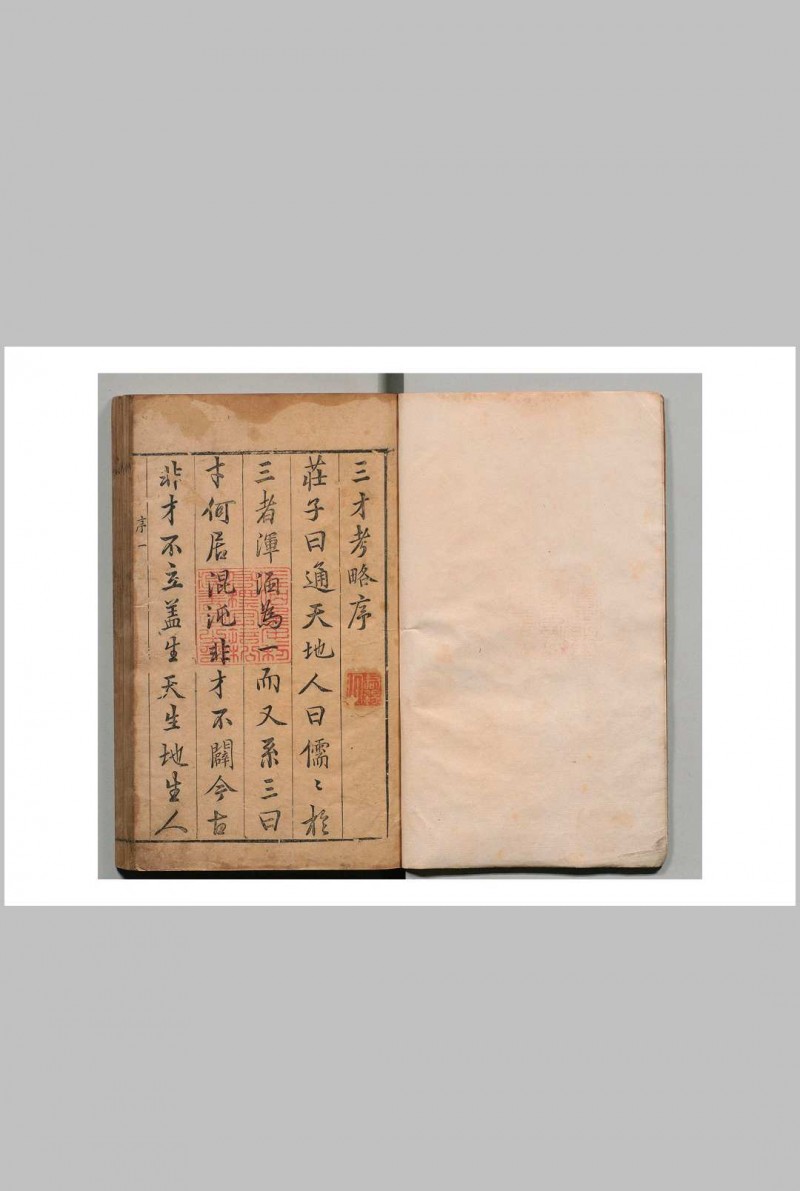 三才考略序
莊子曰通天地人曰儒〻於
三者渾涵為一而又系三曰
才何居混沌非才不闢今古
非才不立蓋生天生地生人
序一